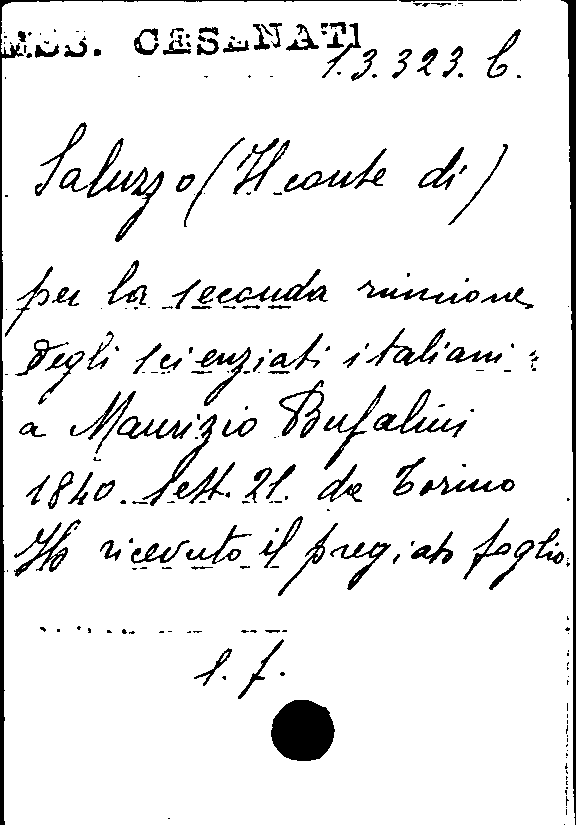 MSS. CESENATI
1.3.323.6.
Saluzzo (Il conte di)
per la seconda riunione
degli scienziati italiani =
a Maurizio Bufalini
1840. Sett. 21. da Torino
Ho ricevuto il pregiato foglio.
1. f.